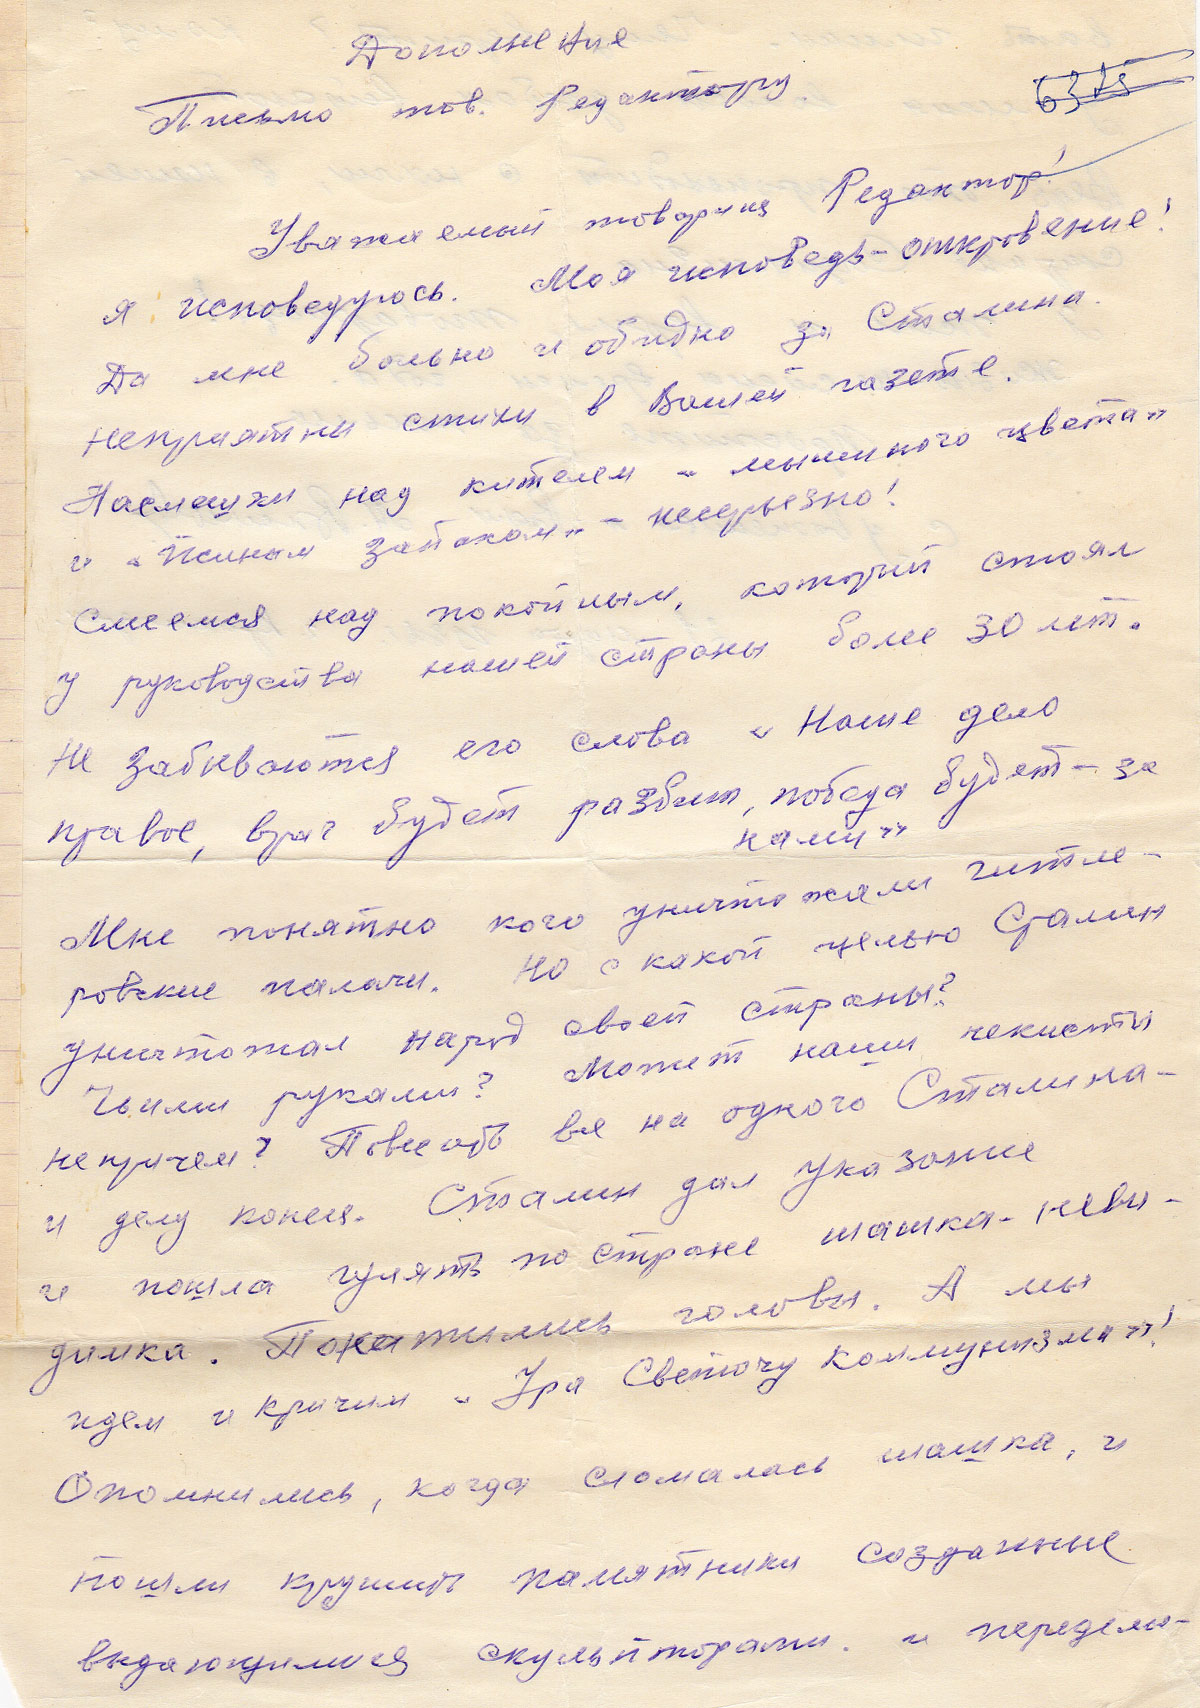 Дополнение
Письмо тов. Редактору.
Уважаемый товарищ Редактор!
я исповедуюсь. Моя исповедь-откровение!
Да мне больно и обидно за Сталина.
неприятны стихи в Вашей газете.
Насмешки над кителем „мышиного цвета"
и „ запахом" - несерьезно!
Смеемся над покойным, который стоял
у руководства нашей страны более 30 лет.
Не забываются его слова „Наше дело
правое, враг будет разбит, победа будет - за
нами"
Мне понятно кого уничтожали гитле-
ровские палачи. Но с какой целью Сталин
уничтожал народ своей страны?
Чьими руками? Может наши чекисты
непричем? Повесить все на одного Сталина-
и делу конец. Сталин дал указание
и пошла гулять по стране шашка-неви-
димка. Покатились головы. А мы
идем и кричим „Ура Светочу коммунизма"!
Опомнились, когда сломалась шашка, и
пошли крушить памятники созданные
выдающимися скульпторами. и переделы-